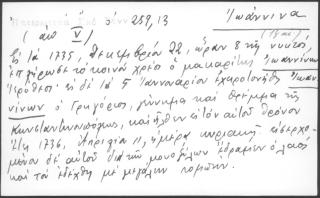 σ. 259, 13 Ἰωάννινα
(ἀπό V)
Εἰς τά 1735, Δεκεμβρίου 22, ὥραν 8 τῆς νυκτός,
ἐπλήρωσε τό κοινόν χρέος ὁ μακαρίτης Ἰωαννίνων
Ἱερόθεος· εἰς δέ τά 5 Ἰανουαρίου ἐχειροτονήθη Ἰωαν-
νίνων ὁ Γρηγόριος, γέννημα καί θρέμμα τῆς
Κωνσταντινουπόλεως, καί ἦλθεν εἰς τόν αὐτοῦ θρόνον
Εἰς 1736, Ἀπριλίου 11, ἡμέρα κυριακῇ. εἰσερχο-
μένου δέ αὐτοῦ διά τῆς μονοξύλων ἔδραμεν ὁ λαός
καί τόν ἐδέχθη μέ μεγάλην πομπήν.